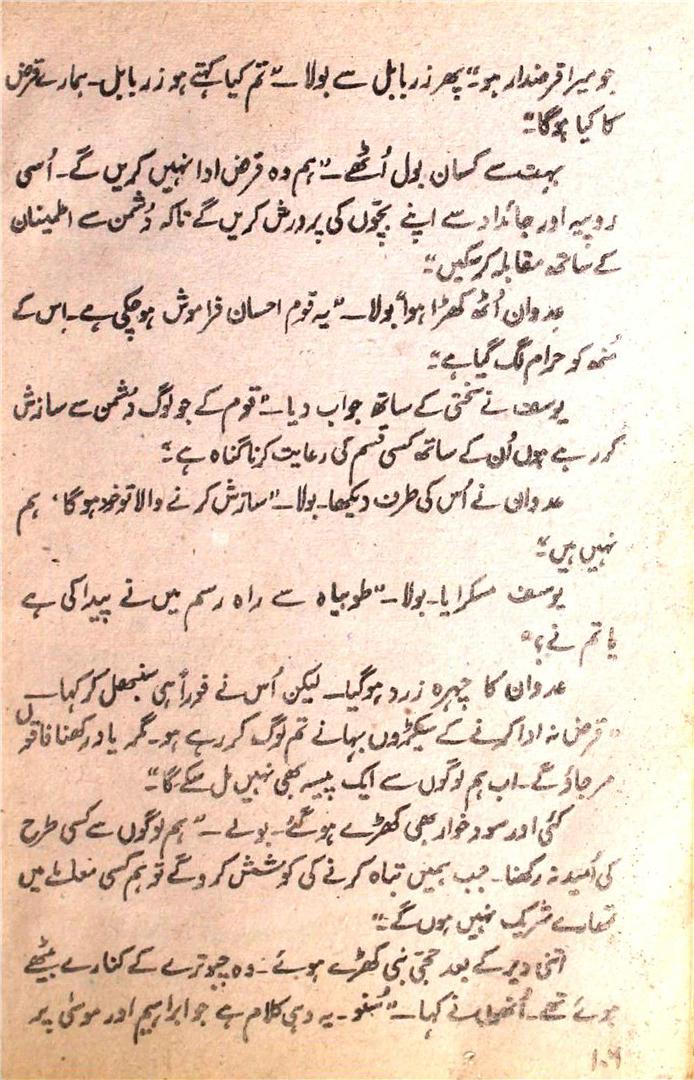 جو میرا قرضدار ہو۔" پھر زربابل سے بولا۔ "تم کیا کہتے ہو زربابل۔ ہمارے قرض
کا کیا ہوگا۔"
بہت سے کسان بول اُٹھے۔ "ہم وہ قرض ادا نہیں کریں گے۔ اُسی
روپیہ اور جائداد سے اپنے بچوں کی پرورش کریں گے تاکہ دُشمن سے اطمینان
کے ساتھ مقابلہ کر سکیں۔"
عدوان اُٹھ کھڑا ہوا بولا۔ "یہ قوم احسان فراموش ہو چکی ہے۔ اِس کے
مُنھ کو حرام لگ گیا ہے۔"
یوسف نے سختی کے ساتھ جواب دیا۔ "قوم کے جو لوگ دُشمن سے سازش
کر رہے ہوں اُن کے ساتھ کسی قسم کی رعایت کرنا گناہ ہے۔"
عدوان نے اُس کی طرف دیکھا۔ بولا۔ "سازش کرنے والا تو خود ہوگا، ہم
نہیں ہیں۔"
یوسف مسکرایا۔ بولا۔ "طوبیاہ سے راہ رسم میں نے پیدا کی ہے
یا تم نے؟"
عدوان کا چہرہ زرد ہوگیا۔ لیکن اُس نے فوراً ہی سنبھل کر کہا۔
"قرض نہ ادا کرنے کے سیکڑوں بہانے تم لوگ کر رہے ہو۔ مگر یاد رکھنا فاقوں
مر جاؤ گے۔ اب ہم لوگوں سے ایک پیسہ بھی نہیں مل سکے گا۔"
کئی اور سود خوار بھی کھڑے ہو گئے۔ بولے۔ "ہم لوگوں سے کسی طرح
کی اُمید نہ رکھنا۔ جب ہمیں تباہ کرنے کی کوشش کرو گے تو ہم کسی معاملے میں
تمھارے شریک نہیں ہوں گے۔"
اتنی دیر کے بعد حجی نبی کھڑے ہوئے۔ وہ چبوترے کے کنارے بیٹھے
ہوئے تھے۔ اُنھوں نے کہا۔ "سُنو۔ یہ وہی کلام ہے جو ابراہیم اور موسیٰ پر
۱۰۶